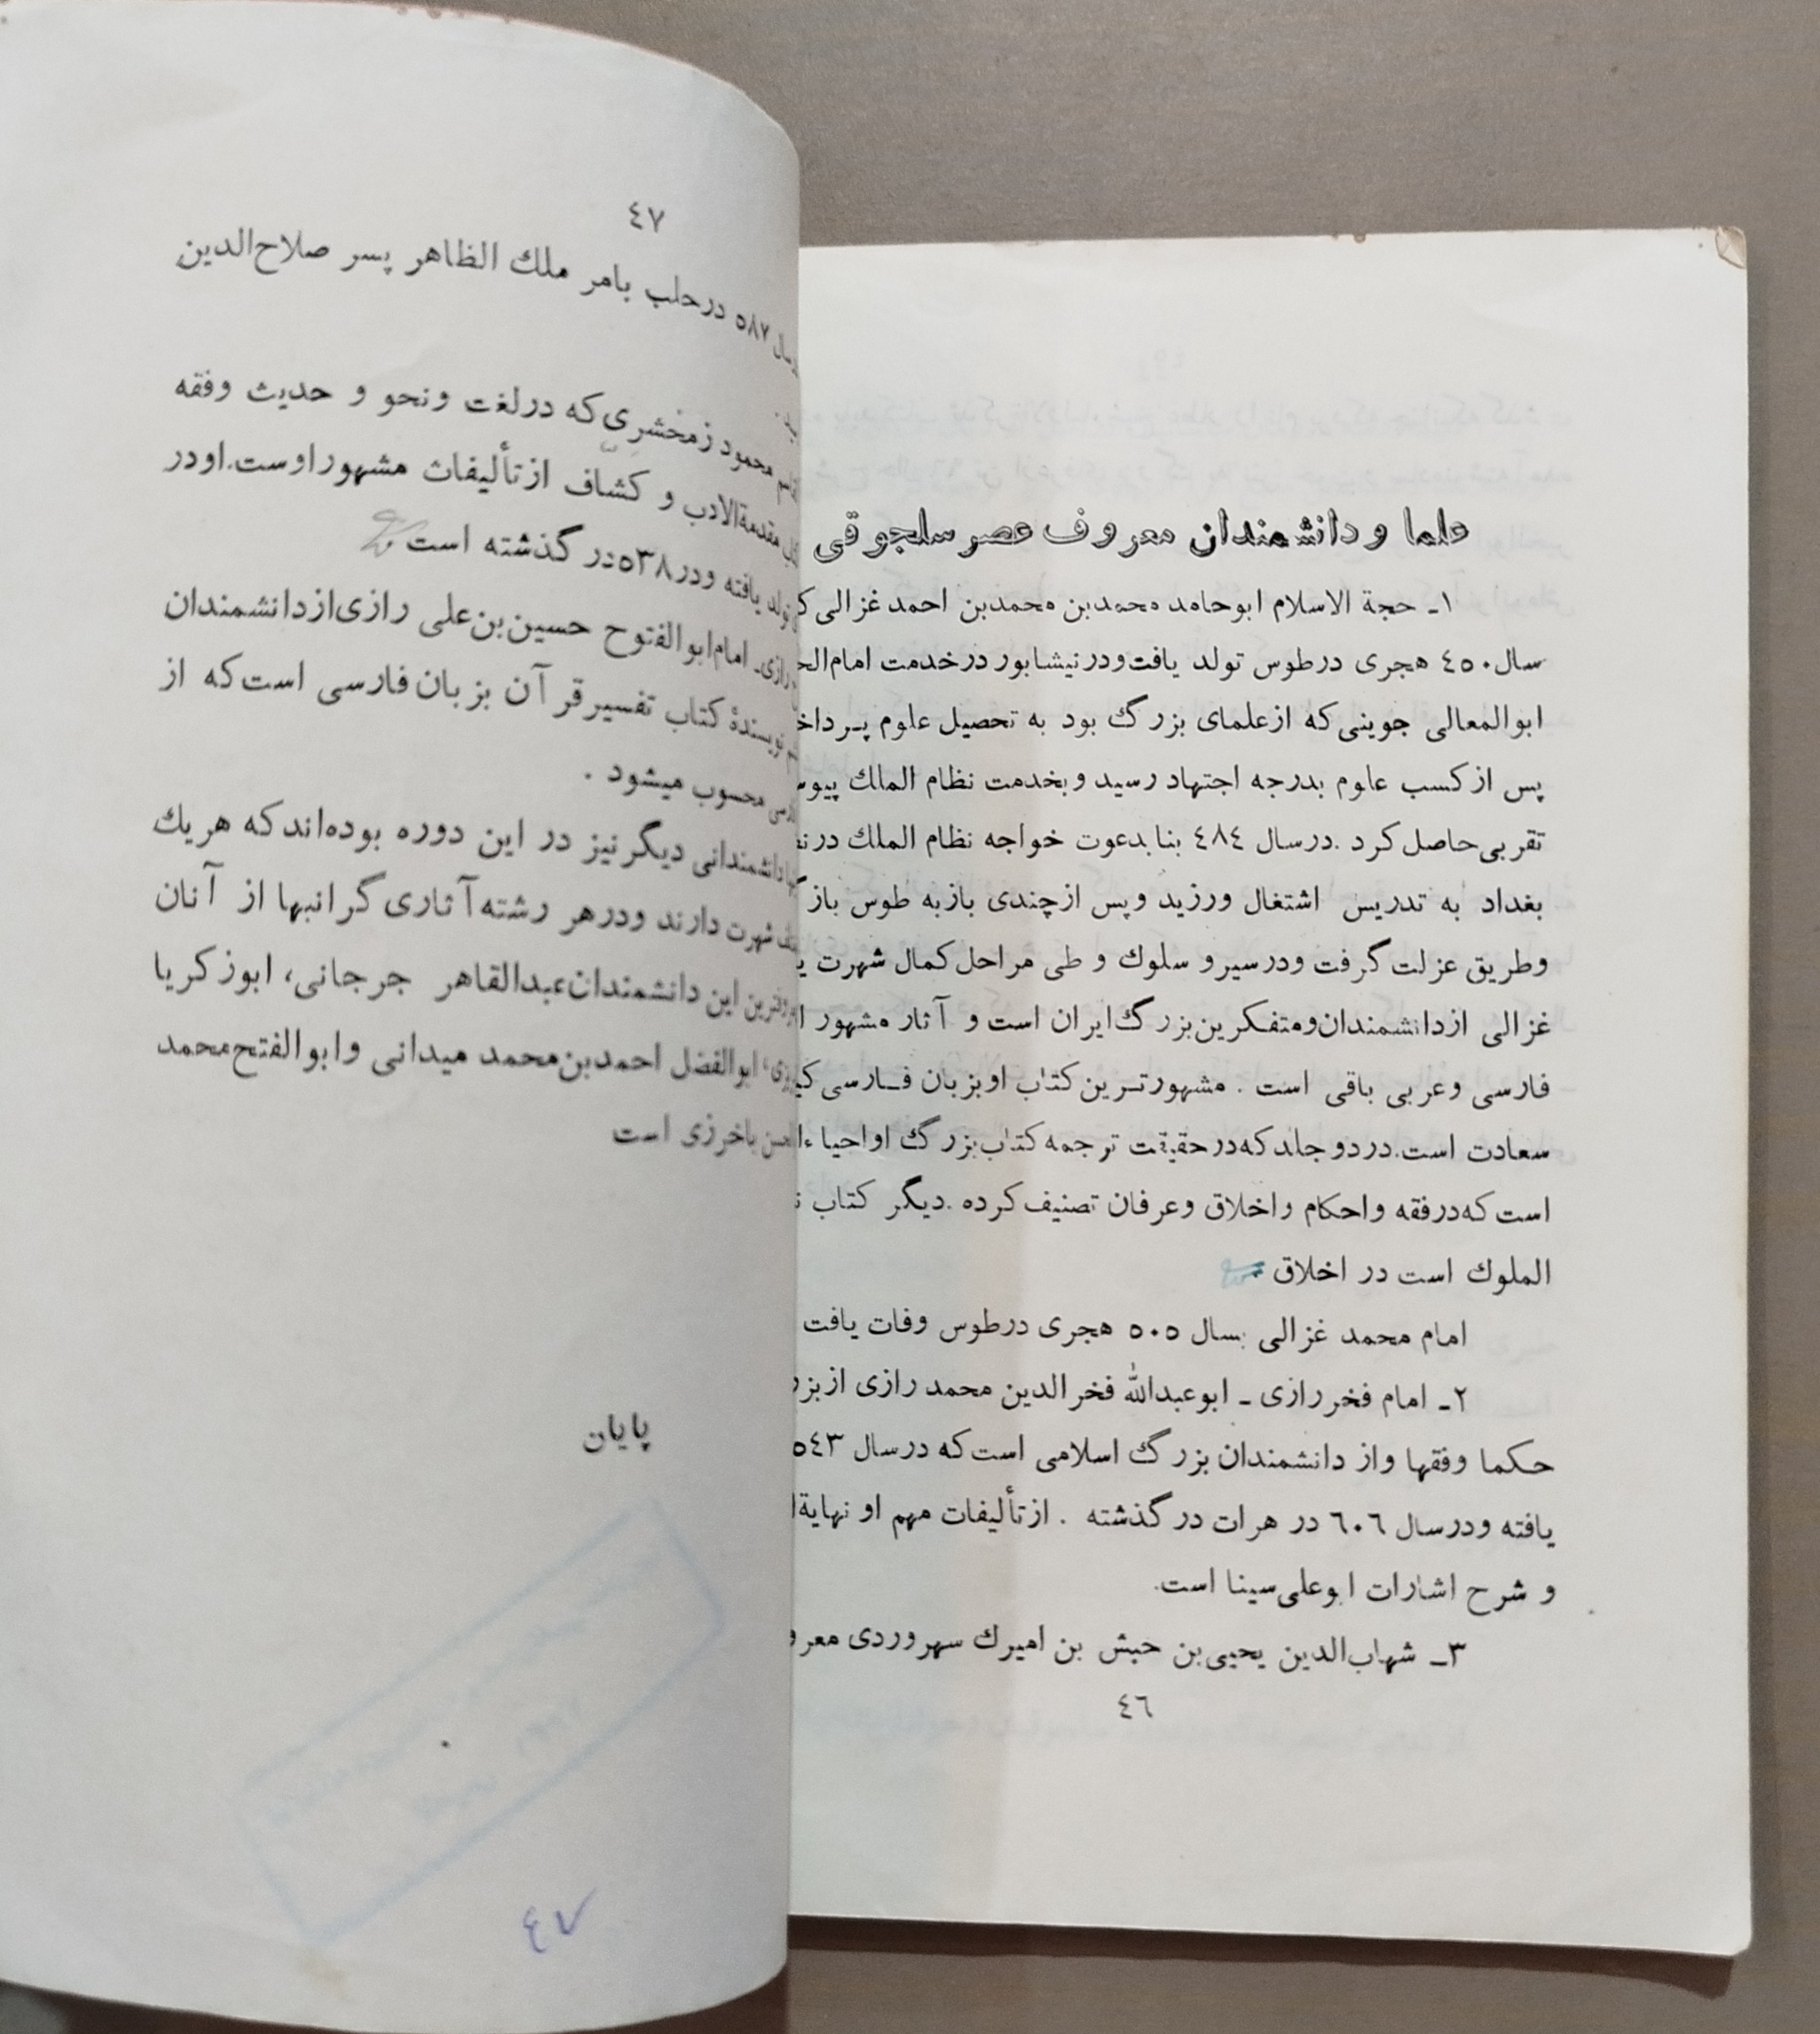 علما و دانشمندان معروف عصر سلجوقی
۱ـ حجة الاسلام ابوحامد محمدبن محمدبن احمد غزالی
سال ٤٥٠ هجری درطوس تولد یافت ودر نیشابور درخدمت
ابوالمعالی جوینی که ازعلمای بزرگ بود به تحصیل علوم
پس ازکسب علوم بدرجه اجتهاد رسید و بخدمت نظام الملك
تقربی حاصل کرد . درسال ٤٨٤ بنا بدعوت خواجه نظام الملك
بغداد به تدریس اشتغال ورزید و پس ازچندی بازبه طوس
وطریق عزلت گرفت ودرسیرو سلوك و طی مراحل کمال شهرت
غزالی ازدانشمندان ومتفکرین بزرگ ایران است و آثار مشهور
فارسی وعربی باقی است . مشهورترین کتاب او بزبان فارسی
سعادت است. دردو جلد که درحقیقت ترجمه کتاب بزرگ او
است که درفقه واحکام واخلاق وعرفان تصنیف کرده . دیگر کتاب
الملوك است در اخلاق
امام محمد غزالی بسال ٥٠٥ هجری درطوس وفات یافت
۲ـ امام فخررازی ـ ابوعبدالله فخرالدین محمد رازی
حکما وفقها واز دانشمندان بزرگ اسلامی است که درسال ٥٤٣
یافته ودرسال ٦٠٦ در هرات درگذشته . ازتألیفات مهم او
و شرح اشارات ابوعلی سینا است.
۳ـ شهاب‌الدین یحیی بن حبش بن امیرك سهروردی
٤٦
٤٧
سال ٥٨٧ درحلب بامر ملك الظاهر پسر صلاح‌الدین
محمود زمخشری که درلغت ونحو و حدیث وفقه
مقدمة‌الادب و کشاف ازتألیفات مشهوراوست. اودر
تولد یافته ودر ٥٣٨ در گذشته است
رازی ـ امام ابوالفتوح حسین بن علی رازی ازدانشمندان
نویسندۀ کتاب تفسیر قرآن بزبان فارسی است که از
محسوب میشود .
دانشمندانی دیگر نیز در این دوره بوده‌اند که هریك
شهرت دارند ودرهر رشته آثاری گرانبها از آنان
این دانشمندان عبدالقاهر جرجانی، ابوزکریا
ابوالفضل احمدبن محمد میدانی وابوالفتح محمد
باخرزی است
پایان
٤٧